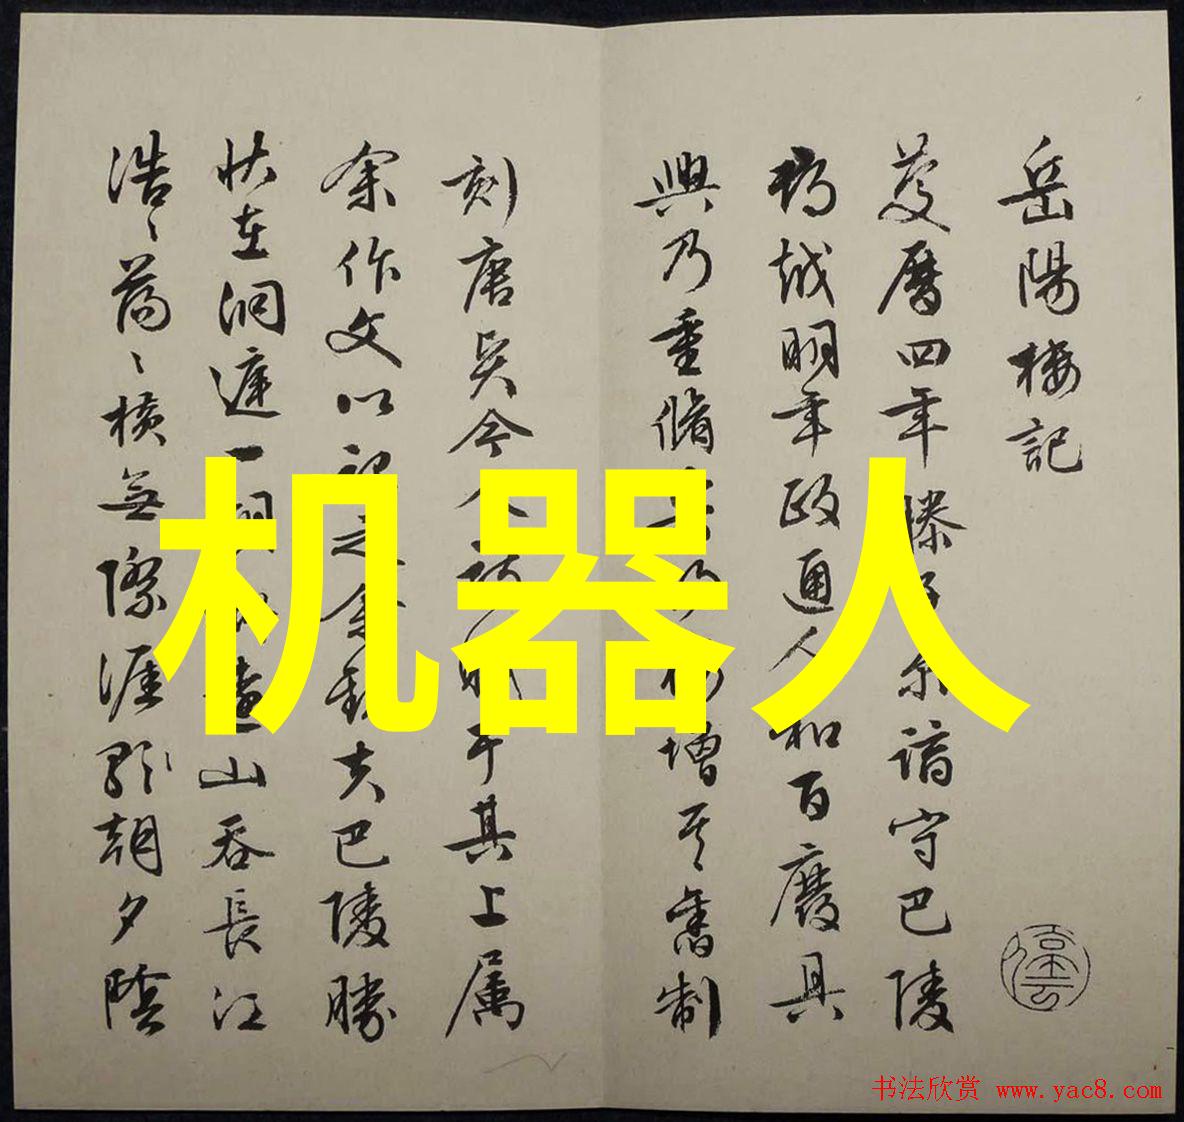 岳陽樓記
慶曆四年滕子京謫守巴陵
郡越明年政通人和百廢具
興乃重脩增其舊制
刻唐賢今人于其上屬
余作文以記之余觀夫巴陵勝
狀在洞庭一湖遠山吞長江
浩〻蕩〻橫無際涯朝夕陰
机器人
书法欣赏 www.yac8.com